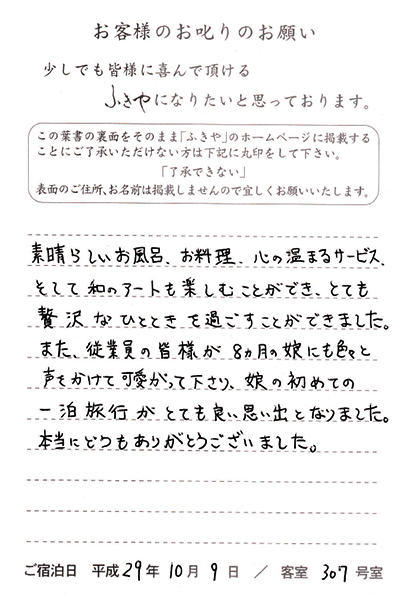 お客様のお叱りのお願い
少しでも皆様に喜んで頂ける
ふきやになりたいと思っております。
この葉書の裏面をそのまま「ふきや」のホームページに掲載する
ことにご了承いただけない方は下記に丸印をして下さい。
「了承できない」
表面のご住所、お名前は掲載しませんので宜しくお願いいたします。
素晴らしいお風呂、お料理、心の温まるサービス、
そして和のアートも楽しむことができ、とても
贅沢なひとときを過ごすことができました。
また、従業員の皆様が8ヵ月の娘にも色々と
声をかけて可愛がって下さり、娘の初めての
一泊旅行がとても良い思い出となりました。
本当にどうもありがとうございました。
ご宿泊日 平成29年10月9日 / 客室 307号室